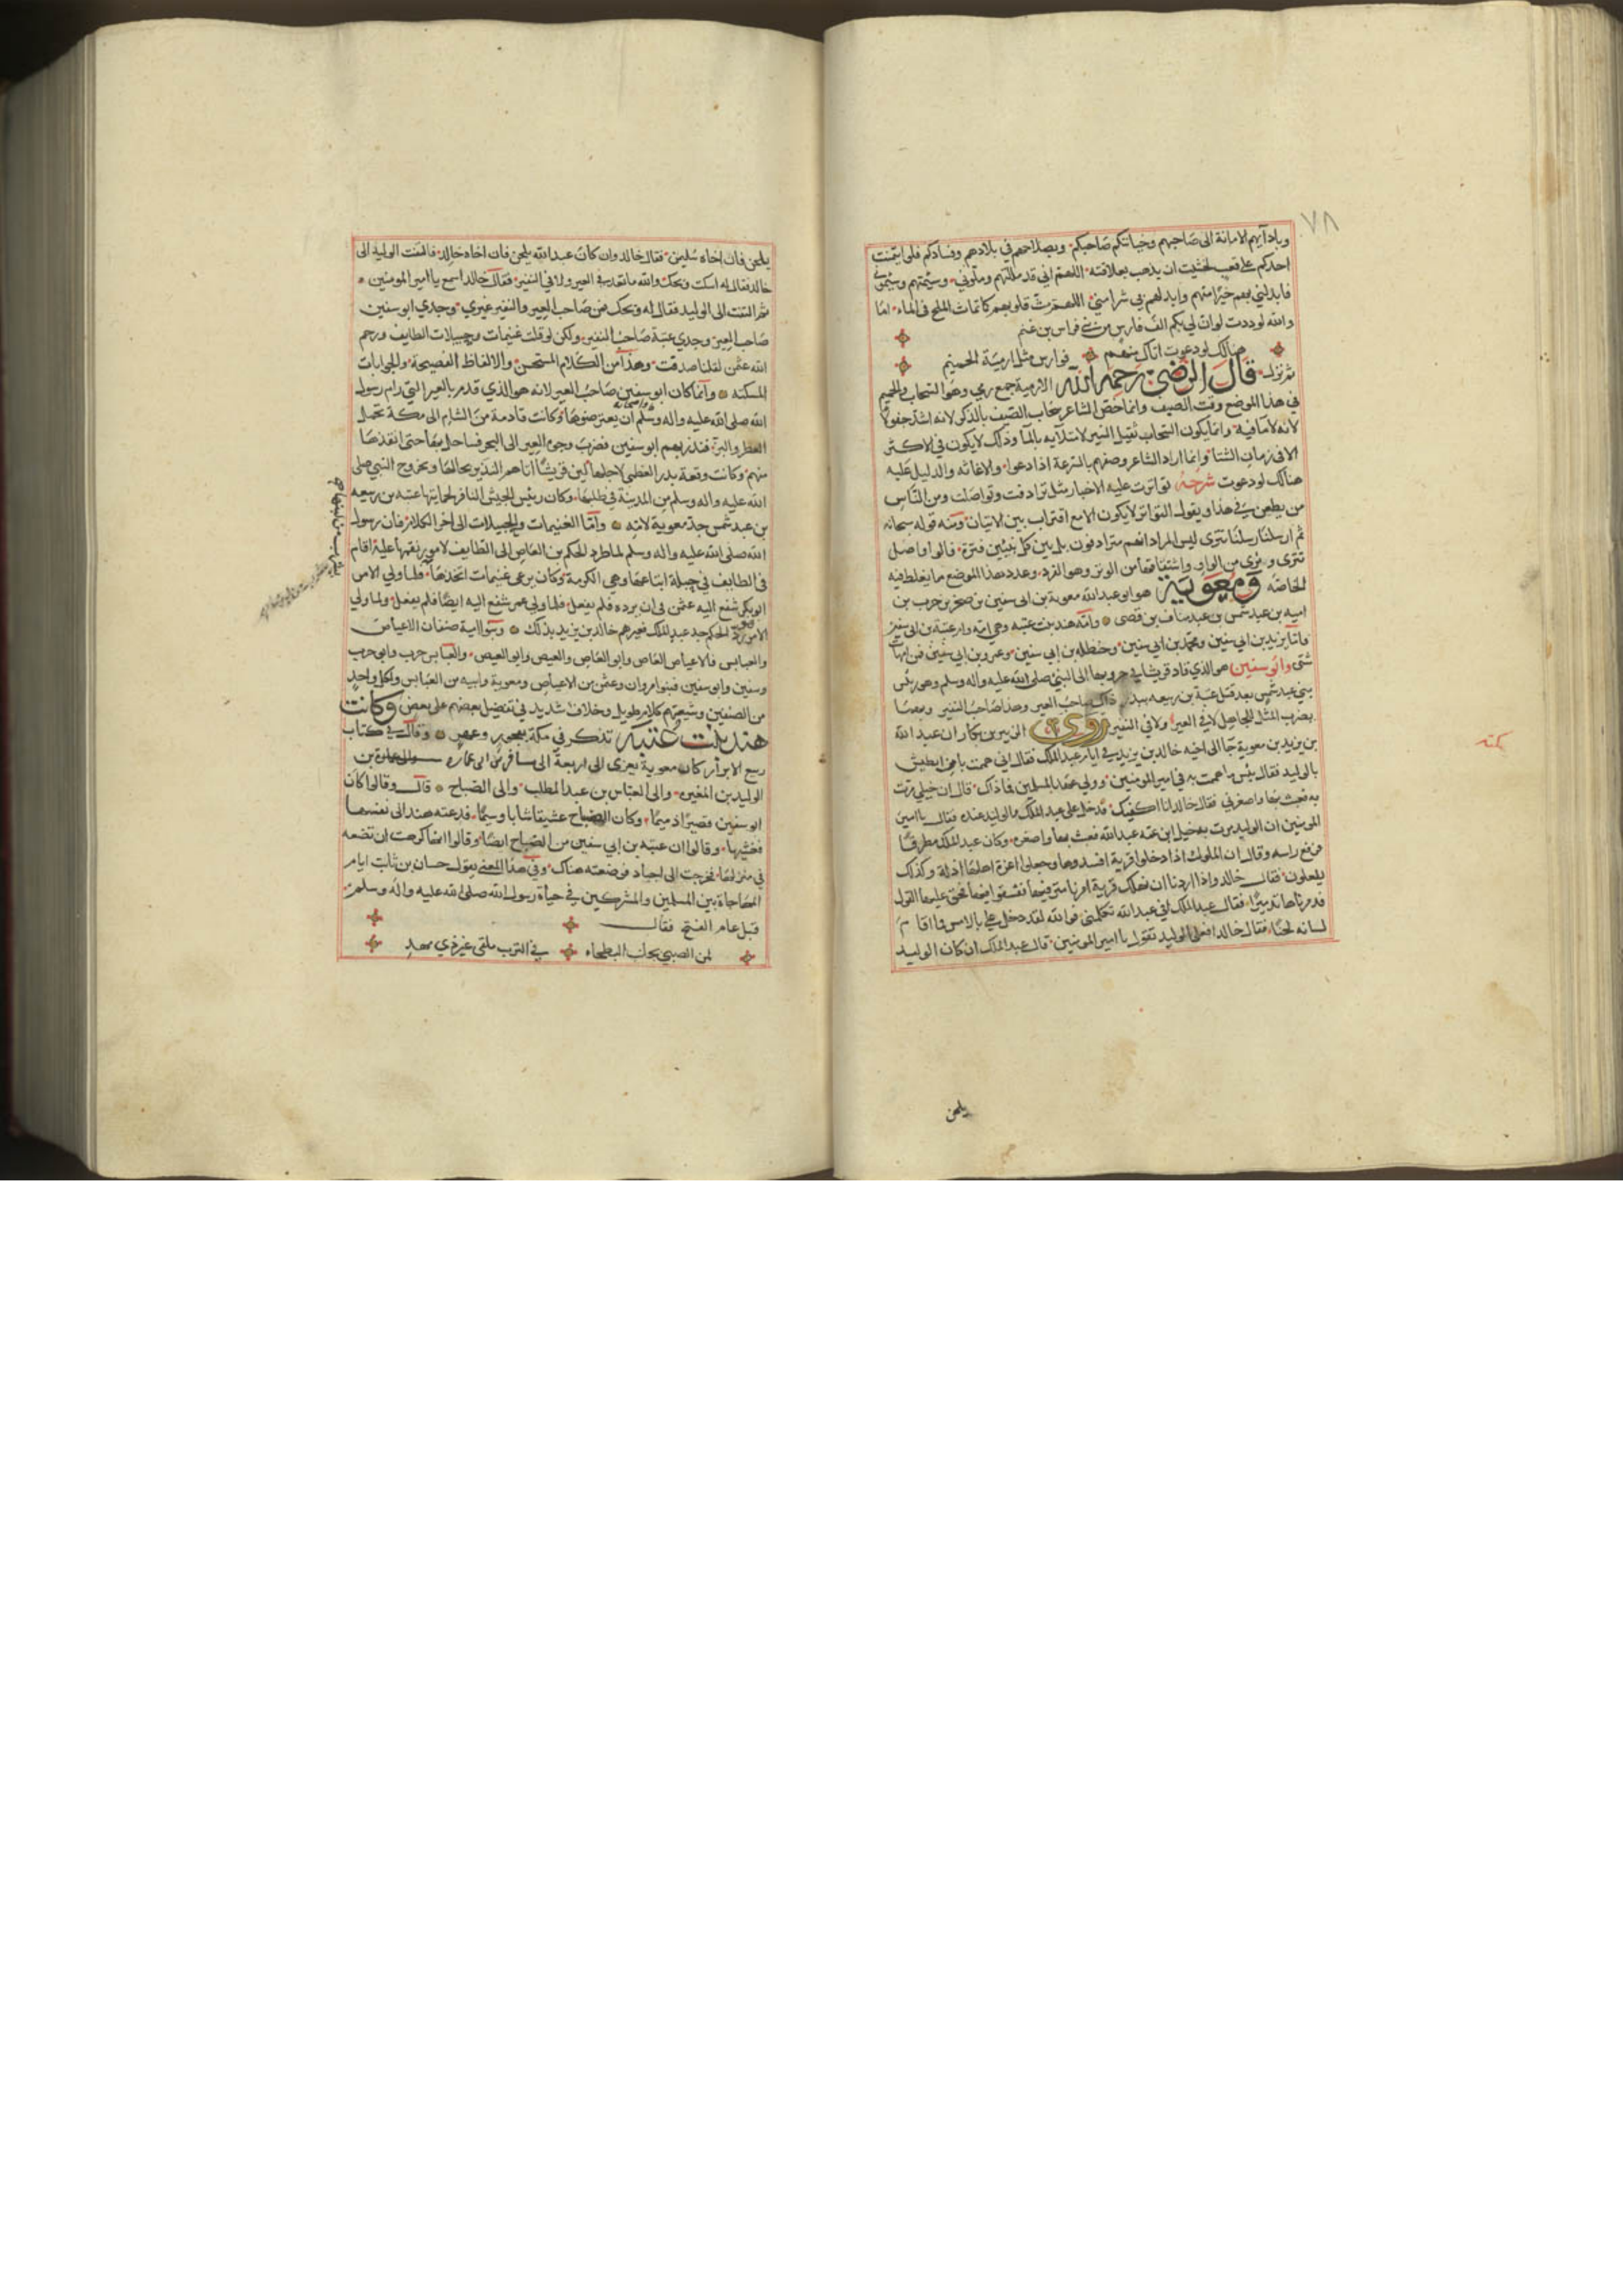 ٧٨
وبادآيهم الامانة الى صاحبهم وخيانتكم صاحبكم وبصلاحهم في بلادهم وفسادكم فلو ايتمنت
احدكم على قعب لخشيت ان يذهب بعلاقته اللهم اني قد مللتهم وملوني وسئمتهم وسئموني
فابدلني بهم خيرا منهم وابدلهم بي شرا مني اللهم مث قلوبهم كما تماث الملح في الماء اما
والله لوددت لو ان لي بكم الف فارس من بني فراس بن غنم
هنالك لو دعوت اتاك منهم فوارس مثل ارمية الحميم
ثم نزل قال الرضي رحمه الله الارمية جمع رمي وهو السحاب والحميم
في هذا الموضع وقت الصيف وانما خص الشاعر سحاب الصيف بالذكر لانه اشد جفولا
لانه لا ما فيه وانما يكون السحاب ثقيل السير لامتلآيه بالمآ وذلك لا يكون في الاكثر
الا في زمان الشتا وانما اراد الشاعر وصفهم بالسرعة اذا دعوا والاغاثه والدليل عليه
هنالك لو دعوت شرحه تواترت عليه الاخبار مثل ترادفت وتواصلت ومن الناس
من يطعن في هذا ويقول التواتر لا يكون الا مع اقتراب بين الاتيان ومنه قوله سبحانه
ثم ارسلنا رسلنا تترى ليس المراد انهم مترادفون بل بين كل نبيين فترة قالوا واصل
تترى وترى من الواو واشتقاقها من الوتر وهو الفرد وعدد هذا الموضع ما يغلط فيه
الخاصه ومعوية هو ابو عبد الله معوية بن ابي سفين بن صخر بن حرب بن
اميه بن عبد شمس بن عبد مناف بن قصي وامه هند بنت عتبه وهي امه وام عتبة بن ابي سفين
فاما يزيد بن ابي سفين ومحمد بن ابي سفين وحنظله بن ابي سفين وعمرو بن ابي سفين فمن امهات
شتى وابو سفين هو الذي قاد قريشا في حروبها الى النبي صلى الله عليه واله وسلم وهو رئيس
بني عبد شمس بعد قتل عتبة بن ربيعه ببدر ذاك صاحب العير وهذا صاحب النفير وبهما
يضرب المثل للخامل لا في العير ولا في النفير روى الزبير بن بكار ان عبد الله
بن يزيد بن معوية جا الى اخيه خالد بن يزيد في ايام عبد الملك فقال اني هممت يا اخي ان افتك
بالوليد فقال بئس ما هممت به في امير المومنين وولي عهد المسلمين فما ذاك قال ان خيلي مرت
به فعبث بها واصغرني فقال خالد انا اكفيك فدخل على عبد الملك والوليد عنده فقال يا امير
المومنين ان الوليد مرت به خيل ابن عمه عبد الله فعبث بها واصغره وكان عبد الملك مطرقا
فرفع راسه وقال ان الملوك اذا دخلوا قرية افسدوها وجعلوا اعزة اهلها اذلة وكذلك
يفعلون فقال خالد واذا اردنا ان نهلك قرية امرنا مترفيها ففسقوا فيها فحق عليها القول
فدمرناها تدميرا فقال عبد الملك افي عبد الله تكلمني فوالله لقد دخل علي بالامس فما اقام
لسانه لحنا فقال خالد افعلى الوليد تعول يا امير المومنين قال عبد الملك ان كان الوليد
يلحن
يكنه
يلحن فان اخاه سليمن فقال خالد وان كان عبد الله يلحن فان اخاه خالد فالتفت الوليد الى
خالد فقال له اسكت ويحك والله ما تعد في العير ولا في النفير فقال خالد اسمع يا امير المومنين
ثم التفت الى الوليد فقال له ويحك فمن صاحب العير والنفير غيري وجدي ابو سفين
صاحب العير وجدي عتبة صاحب النفير ولكن لو قلت غنيمات وجبيلات الطايف ورحم
الله عثمن لقلنا صدقت وهذا من الكلام المستحسن والالفاظ الفصيحة والجوابات
المسكته وانما كان ابو سفين صاحب العير لانه هو الذي قدم بالعير التي رام رسول
الله صلى الله عليه واله وسلم واصحابه ان يعترضوها وكانت قادمة من الشام الى مكة تحمل
العطر والبر فنذر بهم ابو سفين فضرب وجوه العير الى البحر فساحل بها حتى انقذها
منهم وكانت وقعة بدر العظمى لاجلها لان قريشا اتاهم النذير بحالها وبخروج النبي صلى
الله عليه واله وسلم من المدينة في طلبها وكان رئيس الجيش النافر لحمايتها عتبه بن ربيعه
بن عبد شمس جد معوية لامه واما الغنيمات والجبيلات الى اخر الكلام فان رسول
الله صلى الله عليه واله وسلم لما طرد الحكم بن العاص الى الطايف لامور نقمها عليه اقام
في الطايف في حبلة ابتاعها وهي الكرمة وكان يرعى غنيمات اتخذها فلما ولي الامر
ابو بكر شفع اليه عثمن في ان يرده فلم يفعل فلما ولي عمر شفع اليه ايضا فلم يفعل ولما ولي
الامر رد الحكم جد عبد الملك فعيرهم خالد بن يزيد بذلك وبنو امية صنفان الاعياص
والعنابس فالاعياص العاص وابو العاص والعيص وابو العيص والعنابس حرب وابو حرب
وسفين وابو سفين فبنو مروان وعثمن من الاعياص ومعوية وابنه من العنابس ولكل واحد
من الصنفين وشيعتهم كلام طويل وخلاف شديد في تفضيل بعضهم على بعض وكانت
هند بنت عتبه تذكر في مكة بفجور وعهر وقال في كتاب
ربيع الابرار كان معوية يعزى الى اربعة الى مسافر بن ابي عمرو والى عمارة بن
الوليد بن المغيره والى العباس بن عبد المطلب والى الصباح قال وقالوا كان
ابو سفين قصيرا دميما وكان الصباح عشيقا شابا وسيما فدعته هند الى نفسها
فغشيها وقالوا ان عتبه بن ابي سفين من الصباح ايضا وقالوا انها كرهت ان تضعه
في منزلها فخرجت الى اجياد فوضعته هناك وفي هذا المعنى يقول حسان بن ثابت ايام
المهاجاة بين المسلمين والمشركين في حياة رسول الله صلى الله عليه واله وسلم
قبل عام الفتح فقال
لمن الصبي بجانب البطحاء في الترب ملقى غير ذي مهد